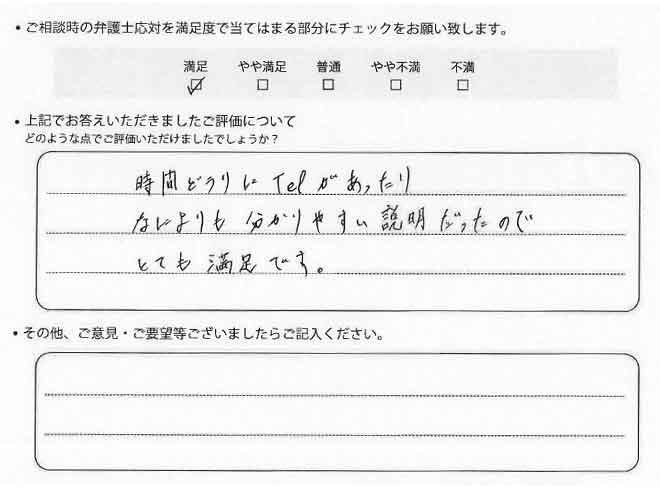 ・ご相談時の弁護士応対を満足度で当てはまる部分にチェックをお願い致します。
満足 やや満足 普通 やや不満 不満
☑ □ □ □ □
・上記でお答えいただきましたご評価について
どのような点でご評価いただけましたでしょうか？
時間どうりに Telがあったり
なによりも 分かりやすい 説明だったので
とても 満足です。
・その他、ご意見・ご要望等ございましたらご記入ください。